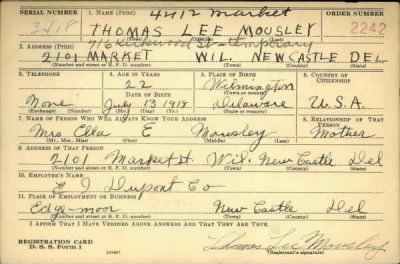 4412 Market
SERIAL NUMBER 1. NAME (Print) ORDER NUMBER
THOMAS LEE MOUSLEY 2242
(First) (Middle) (Last)
2. ADDRESS (Print)
2101 MARKET WIL. NEWCASTLE DEL
(Number and street or R. F. D. number) (Town) (County) (State)
3. TELEPHONE 4. AGE IN YEARS 5. PLACE OF BIRTH 6. COUNTRY OF CITIZENSHIP
22 Wilmington
None DATE OF BIRTH (Town or county)
July 13 1918 Delaware U.S.A.
(Exchange) (Number) (Mo.) (Day) (Yr.) (State or country)
7. NAME OF PERSON WHO WILL ALWAYS KNOW YOUR ADDRESS 8. RELATIONSHIP OF THAT PERSON
Mrs Ella E Mousley Mother
(Mr., Mrs., Miss) (First) (Middle) (Last)
9. ADDRESS OF THAT PERSON
2101 Market St. Wil. New Castle Del
(Number and street or R. F. D. number) (Town) (County) (State)
10. EMPLOYER'S NAME
E I Dupont Co
11. PLACE OF EMPLOYMENT OR BUSINESS
Edge-mor New Castle Del
(Number and street or R. F. D. number) (Town) (County) (State)
I AFFIRM THAT I HAVE VERIFIED ABOVE ANSWERS AND THAT THEY ARE TRUE.
REGISTRATION CARD
D. S. S. Form 1 (over) Thomas Lee Mousley
(Registrant's signature)